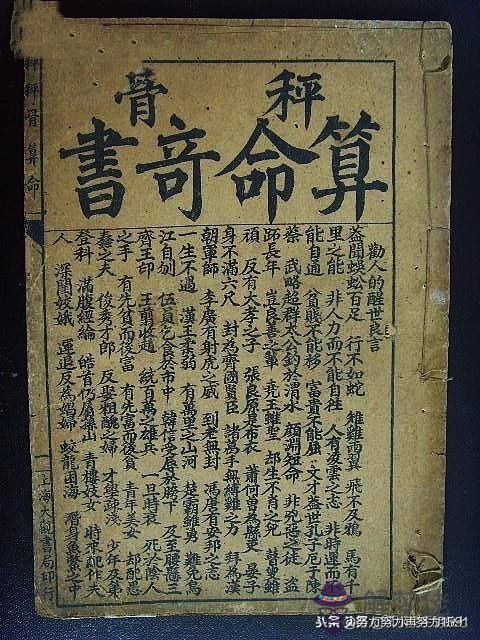 秤骨
算命奇書
勸人的醒世良言
蓋聞蜈蚣百足 行不如蛇 雄雞兩翼 飛不及鴉 馬有千
里之能 非人力而不能自往 人有凌雲之志 非時運而不
能自通 貧賤不能移 富貴不能屈 文才蓋世孔子厄于陳
蔡 武略超群太公釣於渭水 顏淵短命 非兇惡之徒 盜
跖長年 豈良善之輩 堯王雖聖 却生不肖之兒 瞽叟雖
頑 反有大孝之子 張良原是布衣 蕭何曾為縣吏 晏子
身不滿六尺 封為齊國賢臣 諸葛手無縛雞之力 拜為漢
朝軍師 李廣有射虎之威 到老無封 馮唐有安邦之志
一生不遇 漢王柔弱 有萬里之山河 楚霸雖勇 難免烏
江自刎 伍員乞食於市中 韓信受辱於胯下 及至腰懸三
齊王印 王翦收趙 統百萬之雄兵 一旦時衰 死於陰人
之手 有先貧而後富 有先富而後貧 青年美女 却配愚
蠢之夫 俊秀才郎 反娶粗醜之婦 才學疎淺 少年及第
登科 滿腹經綸 皓首仍居深山 青樓妓女 時來配作夫
人 深閨嬌娥 運退反為娼婦 蛟龍困海 潛身魚鱉之中
秤骨算命
上海大觀書局印行
头条 @努力努力再努力1591